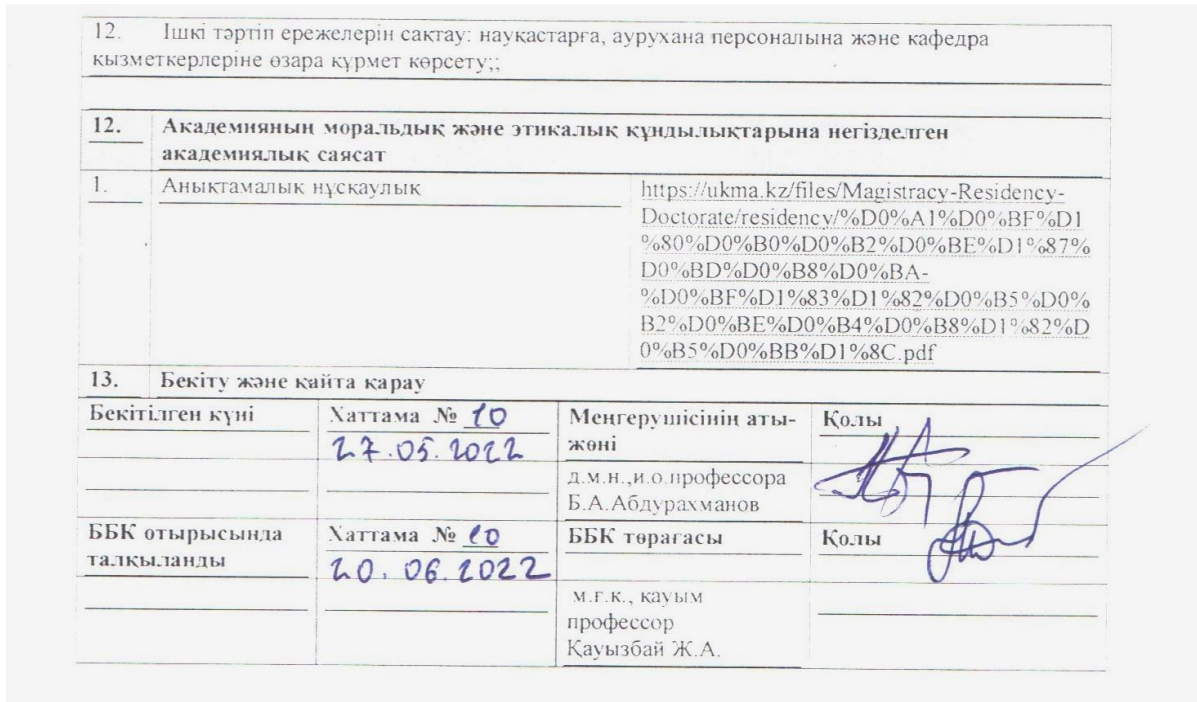 12. Ішкі тәртіп ережелерін сақтау: науқастарға, аурухана персоналына және кафедра
қызметкерлеріне өзара құрмет көрсету;;
12. Академияның моральдық және этикалық құндылықтарына негізделген
академиялық саясат
1. Анықтамалық нұсқаулық
https://ukma.kz/files/Magistracy-Residency-
Doctorate/residency/%D0%A1%D0%BF%D1
%80%D0%B0%D0%B2%D0%BE%D1%87%
D0%BD%D0%B8%D0%BA-
%D0%BF%D1%83%D1%82%D0%B5%D0%
B2%D0%BE%D0%B4%D0%B8%D1%82%D
0%B5%D0%BB%D1%8C.pdf
13. Бекіту және қайта қарау
Бекітілген күні
Хаттама № 10
27.05.2022
Меңгерушісінің аты-
жөні
Қолы
д.м.н.,и.о.профессора
Б.А.Абдурахманов
ББК отырысында
талқыланды
Хаттама № 10
20.06.2022
ББК төрағасы
Қолы
м.ғ.к., қауым
профессор
Қауызбай Ж.А.